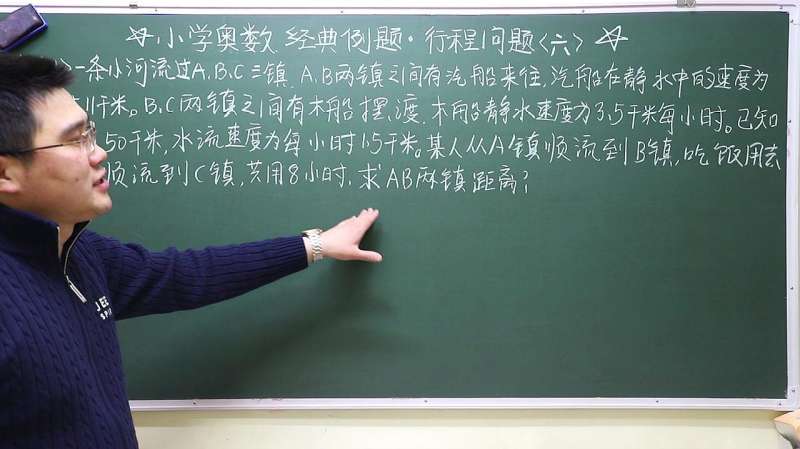 ☆小学奥数 经典例题·行程问题<六>☆
一条小河流过A、B、C三镇. A、B两镇之间有汽船来往,汽船在静水中的速度为
11千米。B、C两镇之间有木船摆渡.木船的静水速度为3.5千米每小时。已知
50千米,水流速度为每小时1.5千米。某人从A镇顺流到B镇,吃饭用去
顺流到C镇,共用8小时,求AB两镇距离?
JEE
SPI